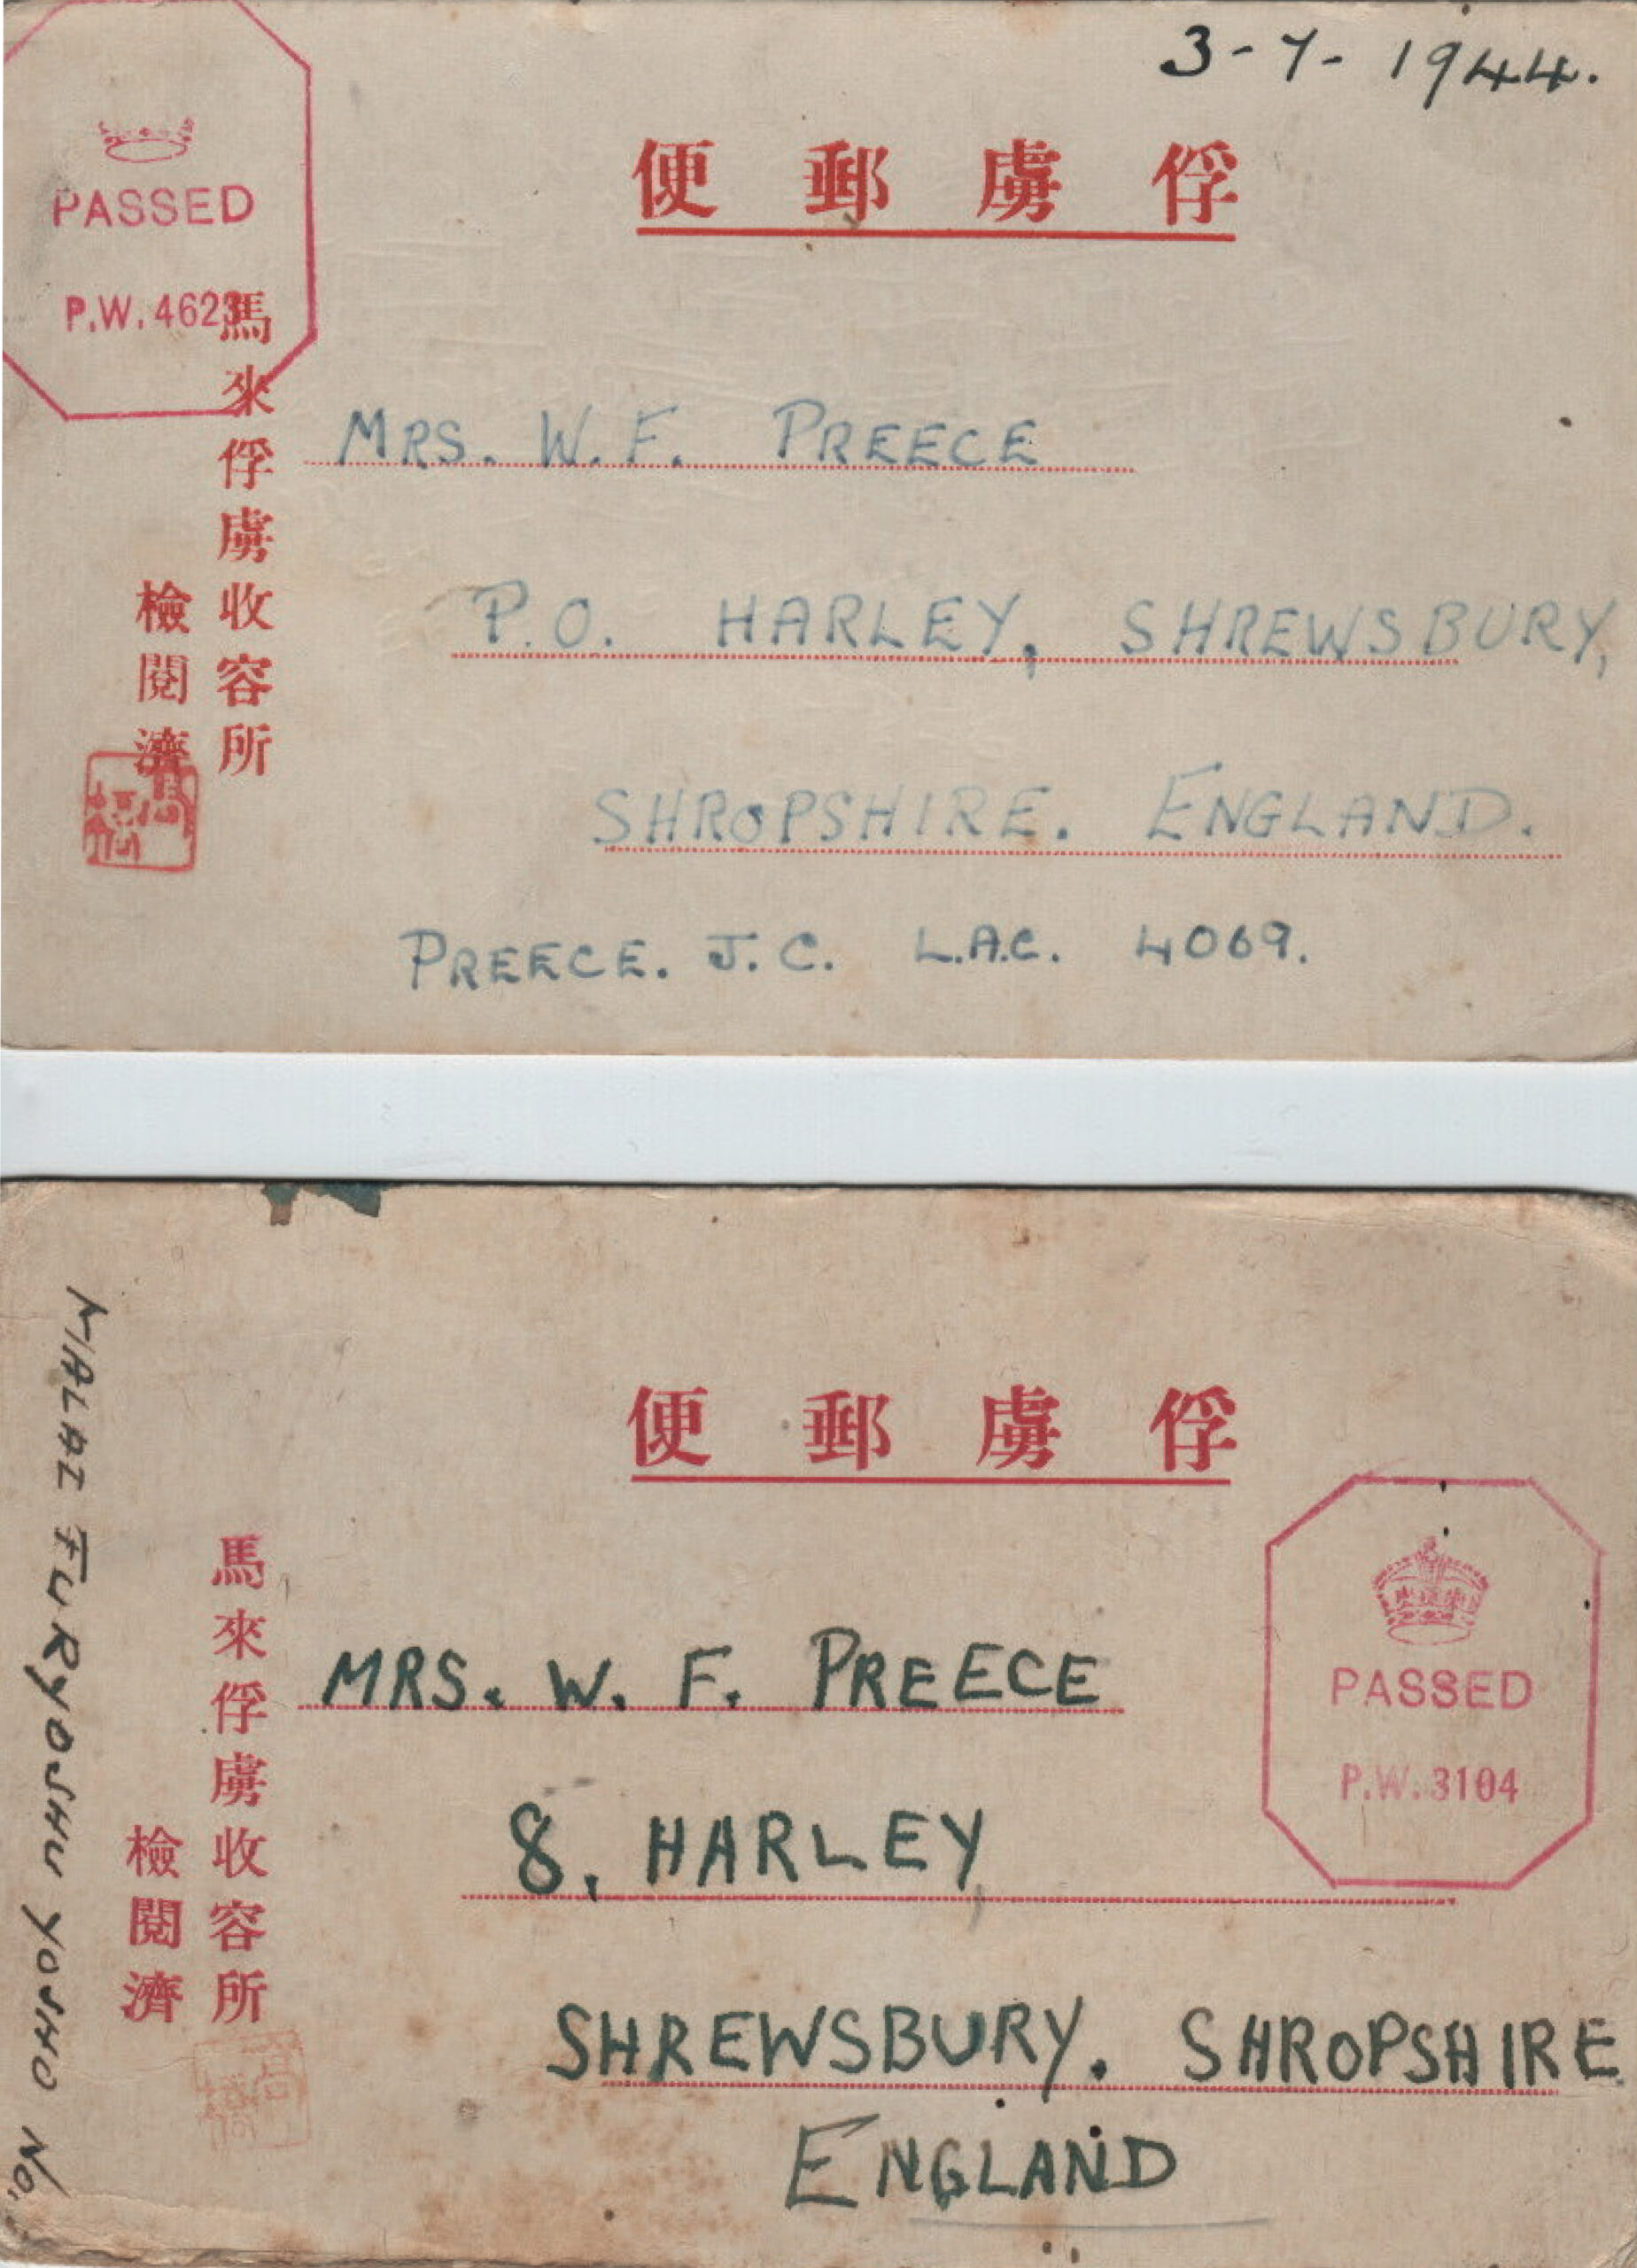 3-7-1944.
俘虜郵便
PASSED
P.W. 4623
馬來俘虜收容所
檢閱濟
MRS. W. F. PREECE
P.O. HARLEY, SHREWSBURY,
SHROPSHIRE. ENGLAND.
PREECE. J. C. L.A.C. 4069.
俘虜郵便
MALAI FURYOSHU YOSHO No.
馬來俘虜收容所
檢閱濟
PASSED
P.W. 3104
MRS. W. F. PREECE
8, HARLEY,
SHREWSBURY. SHROPSHIRE
ENGLAND